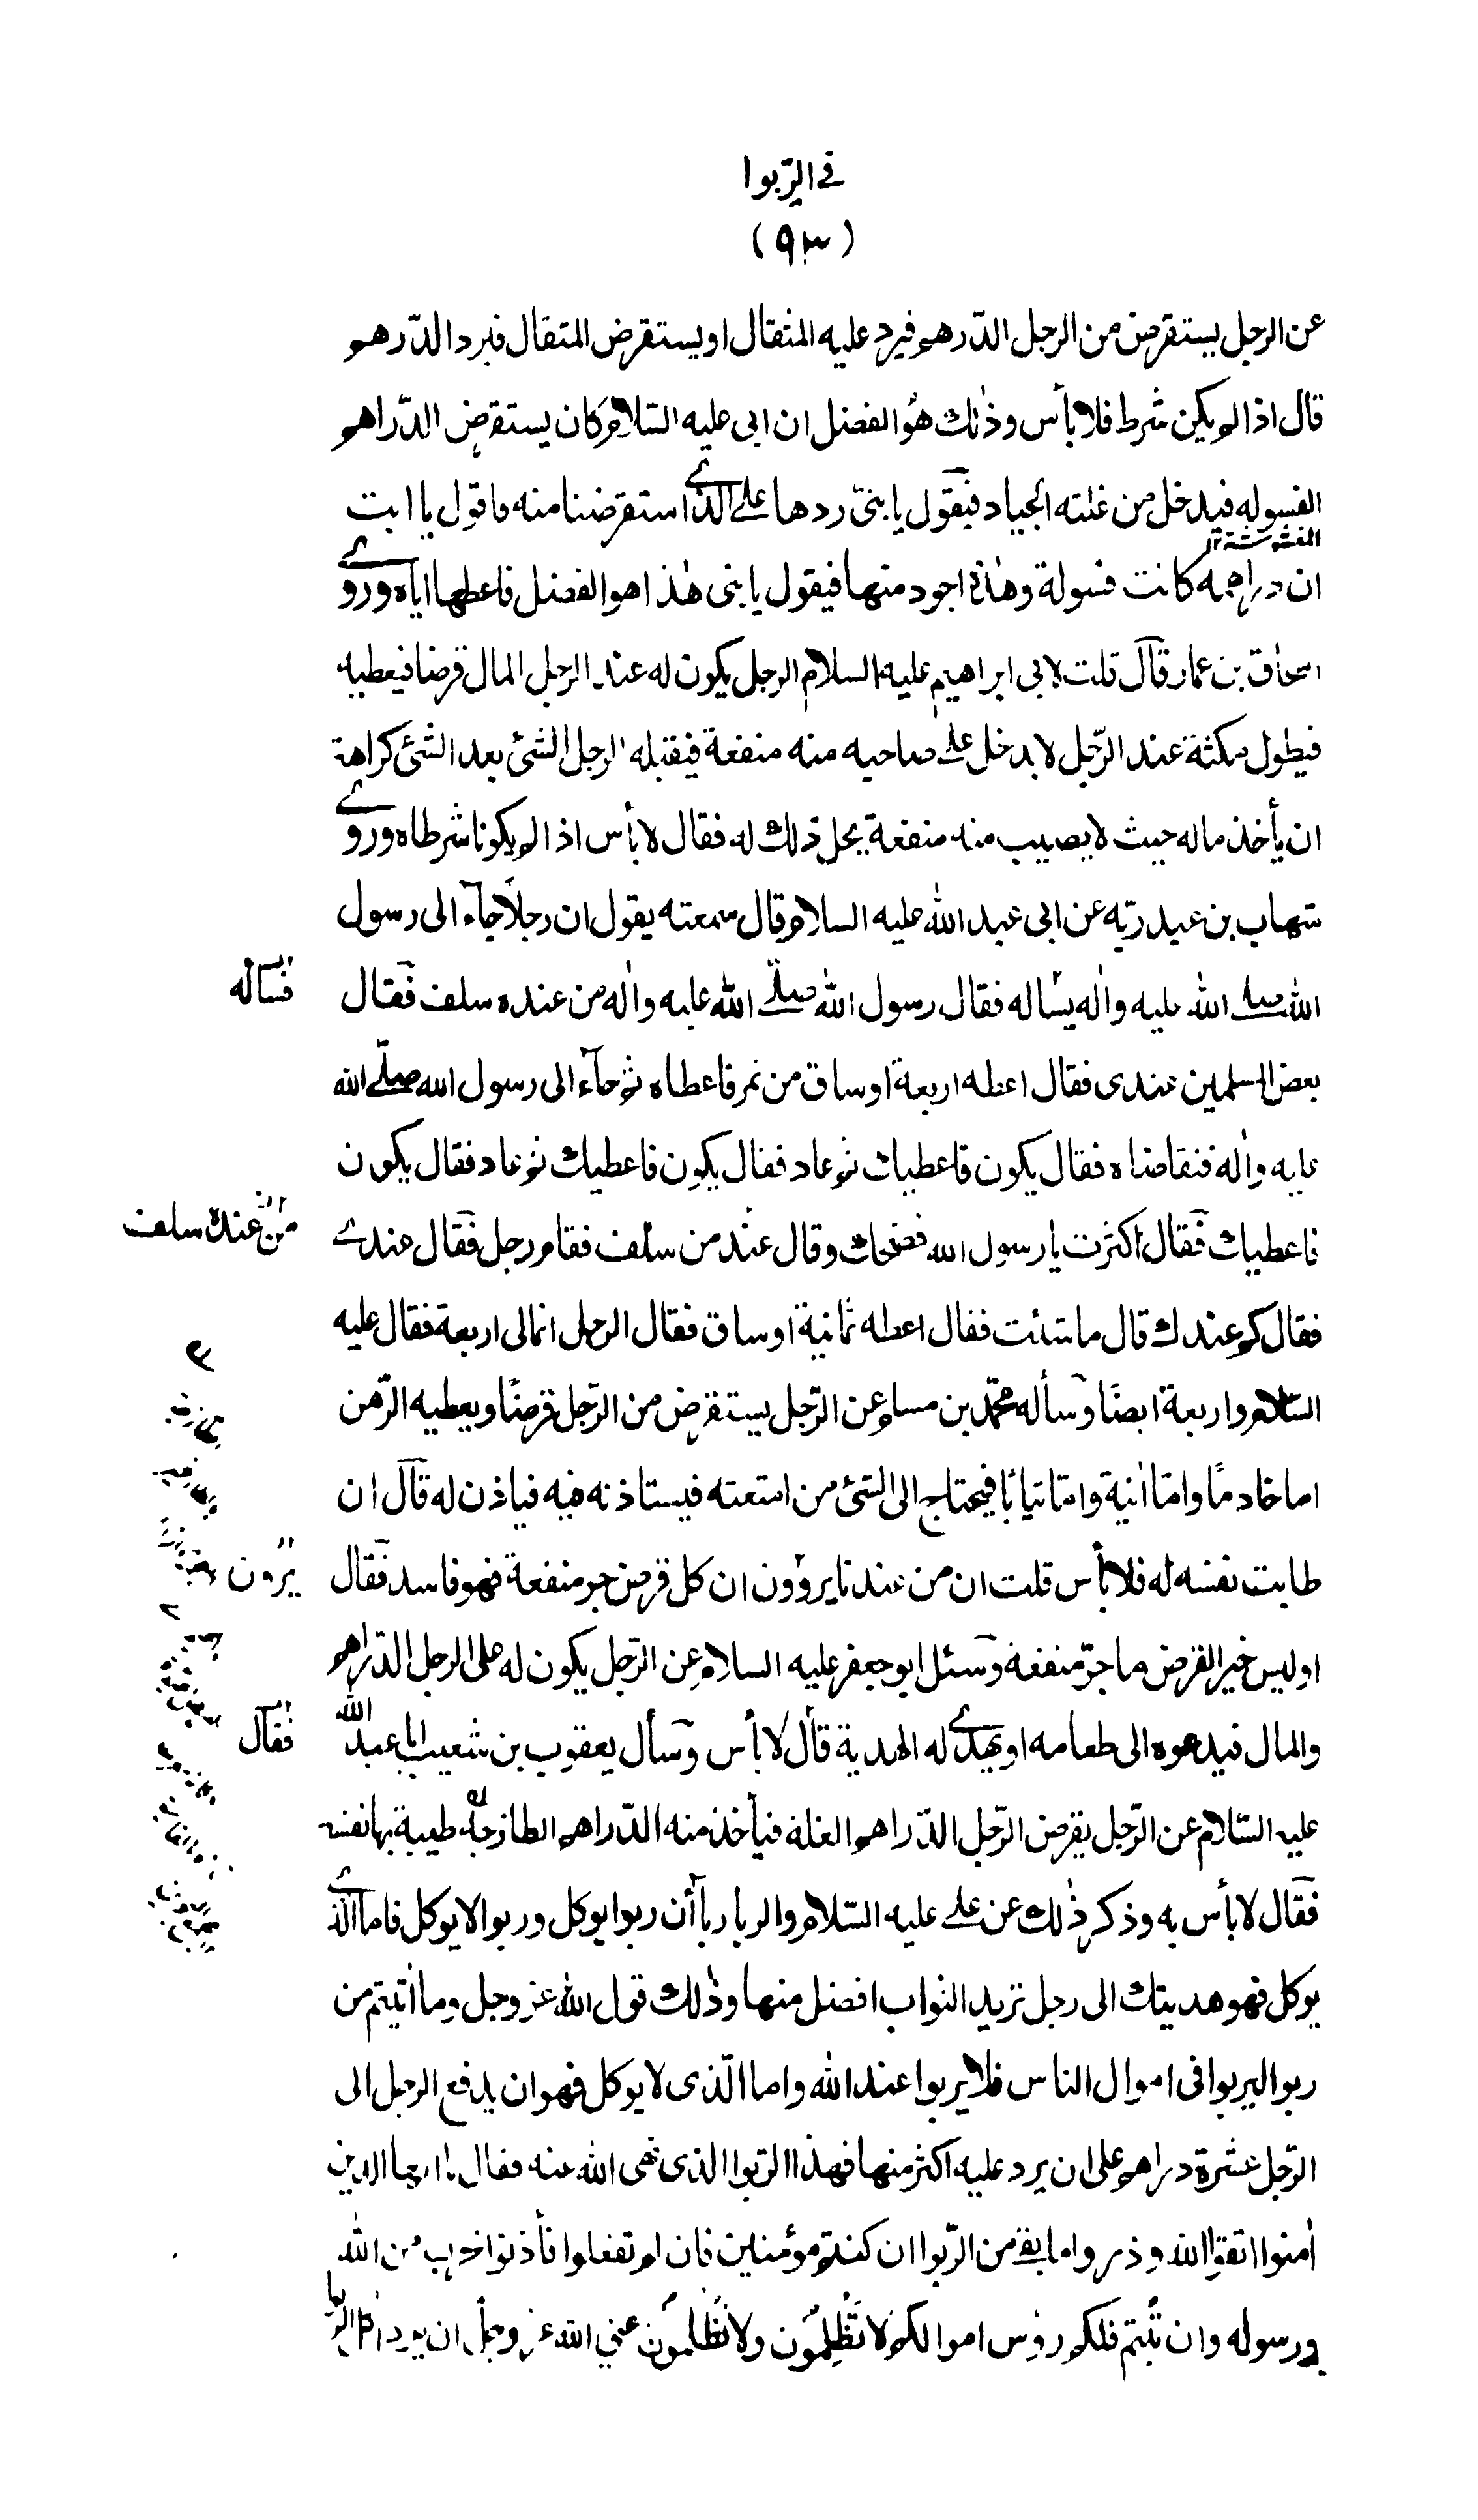 في الربوا
(٩٣)
عن الرجل يستقرض من الرجل الدّرهم فيرد عليه المثقال اويستقرض المثقال فيرد الدّرهم
قال اذا لم يكن شرط فلا بأس وذٰلك هُو الفضل ان ابى عليه السّلام كان يستقرض الدّراهم
الفسوله فيدخل من غلته الجياد فيقول يابنىّ ردها على الذى استقرضنا منه فاقول يا ابت
المغشوشة ١٢
ان دراهمه كانت فسولة وهٰذه اجود منها فيقول يا بنى هٰذا هو الفضل فاعطها اياه وروى
اسحٰق بن عمار قال قلت لابى ابراهيم عليه السلام الرجل يكون له عند الرجل المال قرضا فيعطيه
فيطول مكثة عند الرّجل لا يدخل على صاحبه منه منفعة فيقبله الرجل الشئ بعد الشئ كراهة
ان يأخذ ماله حيث لا يصيب منه منفعة يحل ذلك له فقال لا بأس اذا لم يكونا شرطاه وروى
شهاب بن عبد ربّه عن ابى عبد الله عليه السلام قال سمعته يقول ان رجلاً جآء الى رسول
الله صلى الله عليه واٰله يسٔاله فقال رسول الله صلّى الله عليه واٰله من عنده سلف فقال
فسٔاله
بعض المسلمين عندى فقال اعطه اربعة اوساق من تمر فاعطاه ثم جآء الى رسول الله صلّى الله
عليه واٰله فتقاضاه فقال يكون فاعطيك ثم عاد فقال يكون فاعطيك ثم عاد فقال يكون
فاعطيك فقال اكثرت يا رسول الله فضحك وقال عند من سلف فقام رجل فقال عندى
من عنده سلف
فقال كم عندك قال ما شئت فقال اعطه ثمانية اوساق فقال الرجل انما لى اربعة فقال عليه
السّلام واربعة ايضًا وسأله محمّد بن مسلم عن الرّجل يستقرض من الرّجل قرضًا ويعطيه الرّهن
اما خادمًا وامّا اٰنية وامّا ثيابًا فيحتاج الى الشئ من امتعته فيستاذنه فيه فياذن له قال ان
طابت نفسه له فلا بأس قلت ان من عندنا يروؤن ان كل قرض جر منفعة فهو فاسد فقال
يرون
اوليس خير القرض ما جرّ منفعة وسئل ابو جعفر عليه السلام عن الرّجل يكون له على الرجل الدّراهم
والمال فيدعوه الى طعامه او يهدى له الهدية قال لا بأس وسأل يعقوب بن شعيب ابا عبد الله
فقال
عليه السّلام عن الرّجل يقرض الرّجل الدّراهم الغلة فيأخذ منه الدّراهم الطازجه طيبة بها نفسه
فقال لا بأس به وذكر ذٰلك عن على عليه السّلام والربا ربآأن ربوا يوكل وربوا لا يوكل فاما الّذى
يوكل فهو هديتك الى رجل تريد الثواب افضل منها وذٰلك قول الله عز وجل وما اٰتيتم من
ربوا ليربوا فى اموال الناس فلا يربوا عند الله واما الّذى لا يوكل فهو ان يدفع الرجل الى
الرّجل عشرة دراهم على ان يرد عليه اكثر منها فهذا الرّبوا الذى نهى الله عنه فقال يا ايها الذين
اٰمنوا اتقوا الله وذروا ما بقى من الرّبوا ان كنتم مؤمنين فان لم تفعلوا فأذنوا بحرب من الله
ورسوله وان تبتم فلكم رؤس اموالكم لا تَظْلِمُون ولا تُظْلَمُون عنى الله عز وجل ان يرد اٰكل الرّبا